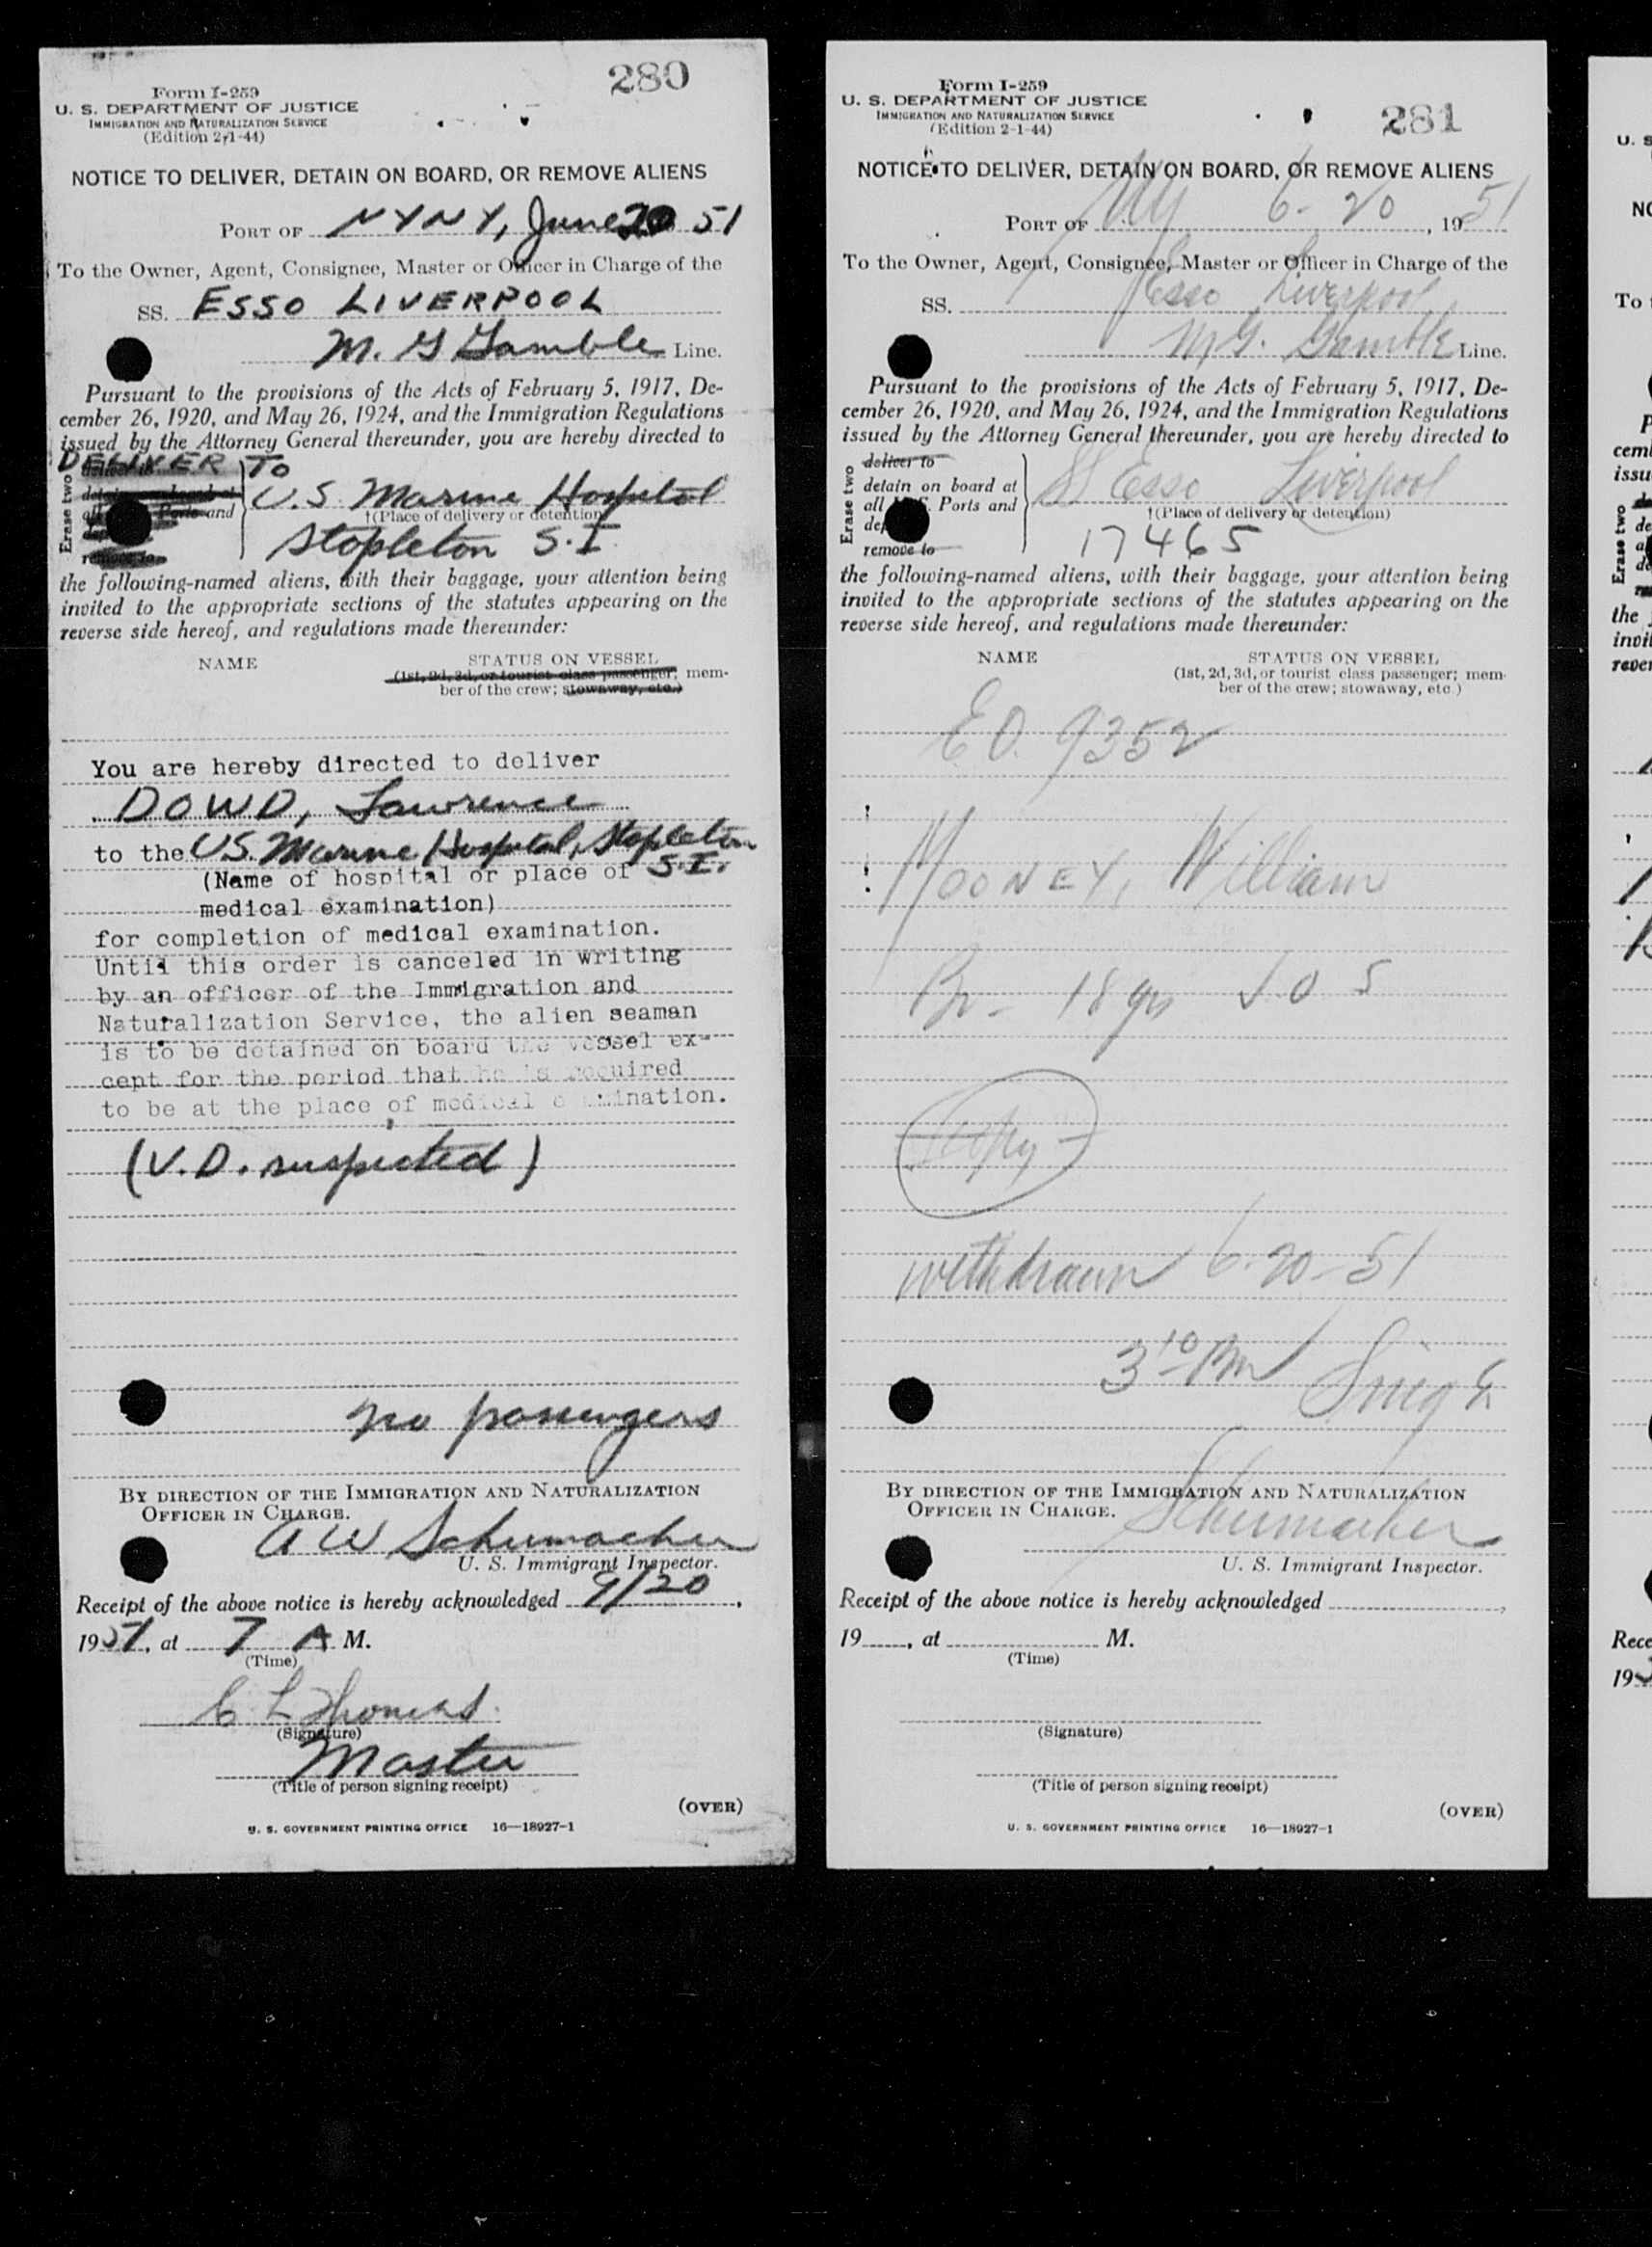 280
Form I-259
U. S. DEPARTMENT OF JUSTICE
IMMIGRATION AND NATURALIZATION SERVICE
(Edition 2-1-44)
NOTICE TO DELIVER, DETAIN ON BOARD, OR REMOVE ALIENS
PORT OF NYNY, June 20 51
To the Owner, Agent, Consignee, Master or Officer in Charge of the
SS. ESSO LIVERPOOL
M. G Gamble Line.
Pursuant to the provisions of the Acts of February 5, 1917, De-
cember 26, 1920, and May 26, 1924, and the Immigration Regulations
issued by the Attorney General thereunder, you are hereby directed to
DELIVER TO
Erase two
Ports and
U.S. Marine Hospital
†(Place of delivery or detention)
Stapleton S.I.
remove to
the following-named aliens, with their baggage, your attention being
invited to the appropriate sections of the statutes appearing on the
reverse side hereof, and regulations made thereunder:
NAME
STATUS ON VESSEL
(1st, 2d, 3d, or tourist class passenger; mem-
ber of the crew; stowaway, etc.)
You are hereby directed to deliver
DOWD, Lawrence
to the US. Marine Hospital, Stapleton
S.I.
(Name of hospital or place of
medical examination)
for completion of medical examination.
Until this order is canceled in writing
by an officer of the Immigration and
Naturalization Service, the alien seaman
is to be detained on board the vessel ex-
cept for the period that he is required
to be at the place of medical examination.
(V.D. suspected)
no passengers
BY DIRECTION OF THE IMMIGRATION AND NATURALIZATION
OFFICER IN CHARGE.
A W Schumacher
U. S. Immigrant Inspector.
Receipt of the above notice is hereby acknowledged 9/20,
1951, at 7 A M.
(Time)
C L Thomas
(Signature)
Master
(Title of person signing receipt)
(OVER)
U. S. GOVERNMENT PRINTING OFFICE 16—18927-1
281
Form I-259
U. S. DEPARTMENT OF JUSTICE
IMMIGRATION AND NATURALIZATION SERVICE
(Edition 2-1-44)
NOTICE TO DELIVER, DETAIN ON BOARD, OR REMOVE ALIENS
PORT OF NY 6-20, 1951
To the Owner, Agent, Consignee, Master or Officer in Charge of the
SS. Esso Liverpool
M G. Gamble Line.
Pursuant to the provisions of the Acts of February 5, 1917, De-
cember 26, 1920, and May 26, 1924, and the Immigration Regulations
issued by the Attorney General thereunder, you are hereby directed to
Erase two
deliver to
detain on board at
all Ports and
remove to
SS Esso Liverpool
†(Place of delivery or detention)
17465
the following-named aliens, with their baggage, your attention being
invited to the appropriate sections of the statutes appearing on the
reverse side hereof, and regulations made thereunder:
NAME
STATUS ON VESSEL
(1st, 2d, 3d, or tourist class passenger; mem-
ber of the crew; stowaway, etc.)
E.O. 9352
MOONEY, William
Br - 18 yrs
Copy
withdrawn 6-20-51
3 10 PM
Schumacher
BY DIRECTION OF THE IMMIGRATION AND NATURALIZATION
OFFICER IN CHARGE.
U. S. Immigrant Inspector.
Receipt of the above notice is hereby acknowledged
19, at M.
(Time)
(Signature)
(Title of person signing receipt)
(OVER)
U. S. GOVERNMENT PRINTING OFFICE 16—18927-1